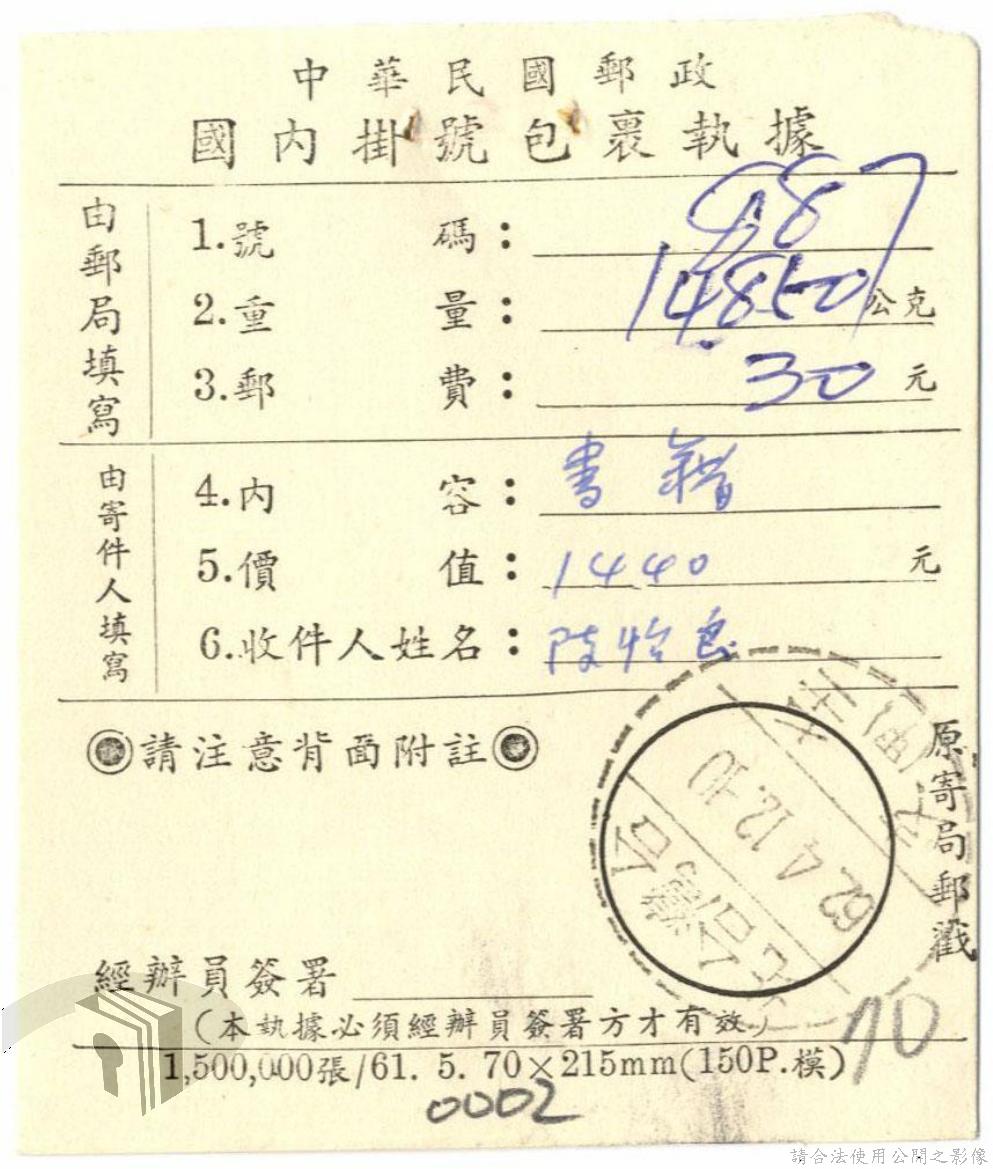 中華民國郵政
國內掛號包裹執據
由郵局填寫
1.號碼： 987
2.重量： 14.850 公克
3.郵費： 30 元
由寄件人填寫
4.內容： 書籍
5.價值： 1440 元
6.收件人姓名： 陳怡良
◎請注意背面附註◎
原寄局郵戳
62.4.12.10
經辦員簽署
（本執據必須經辦員簽署方才有效）
1,500,000張/61. 5. 70×215mm(150P.模)
10
0002
請合法使用公開之影像